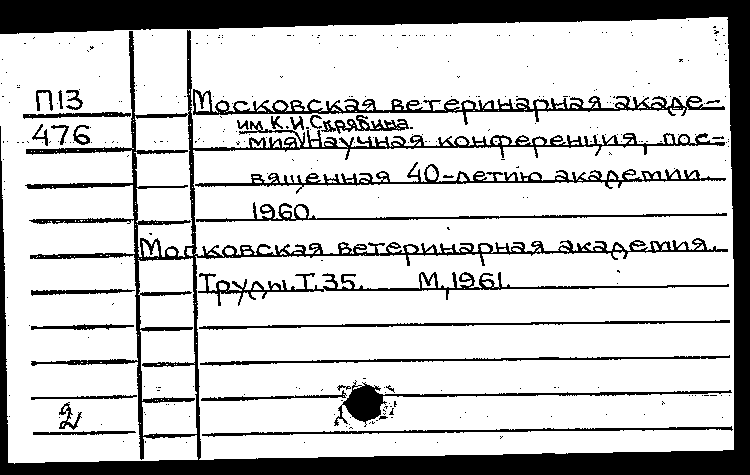 П13 Московская ветеринарная акаде-
им. К.И.Скрябина
476 мия\Научная конференция, пос-
вященная 40-летию академии.
1960.
Московская ветеринарная академия.
Труды.Т.35. М.,1961.